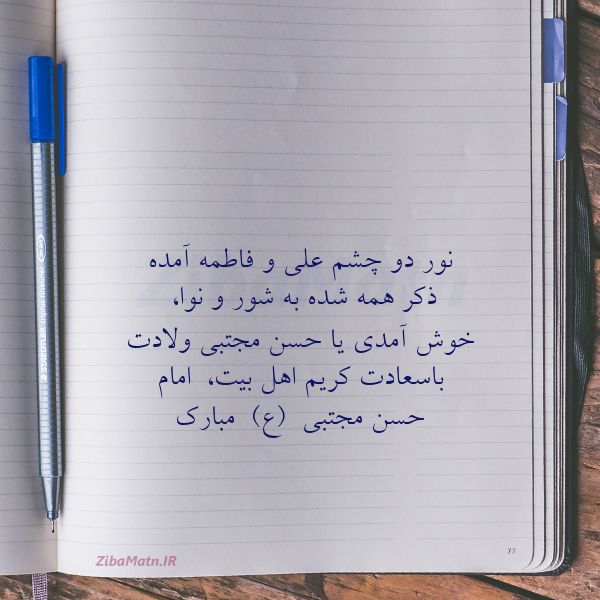 نور دو چشم علی و فاطمه آمده
ذکر همه شده به شور و نوا،
خوش آمدی یا حسن مجتبی ولادت
باسعادت کریم اهل بیت، امام
حسن مجتبی (ع) مبارک
ZibaMatn.IR
77
STAEDTLER triplus fineliner